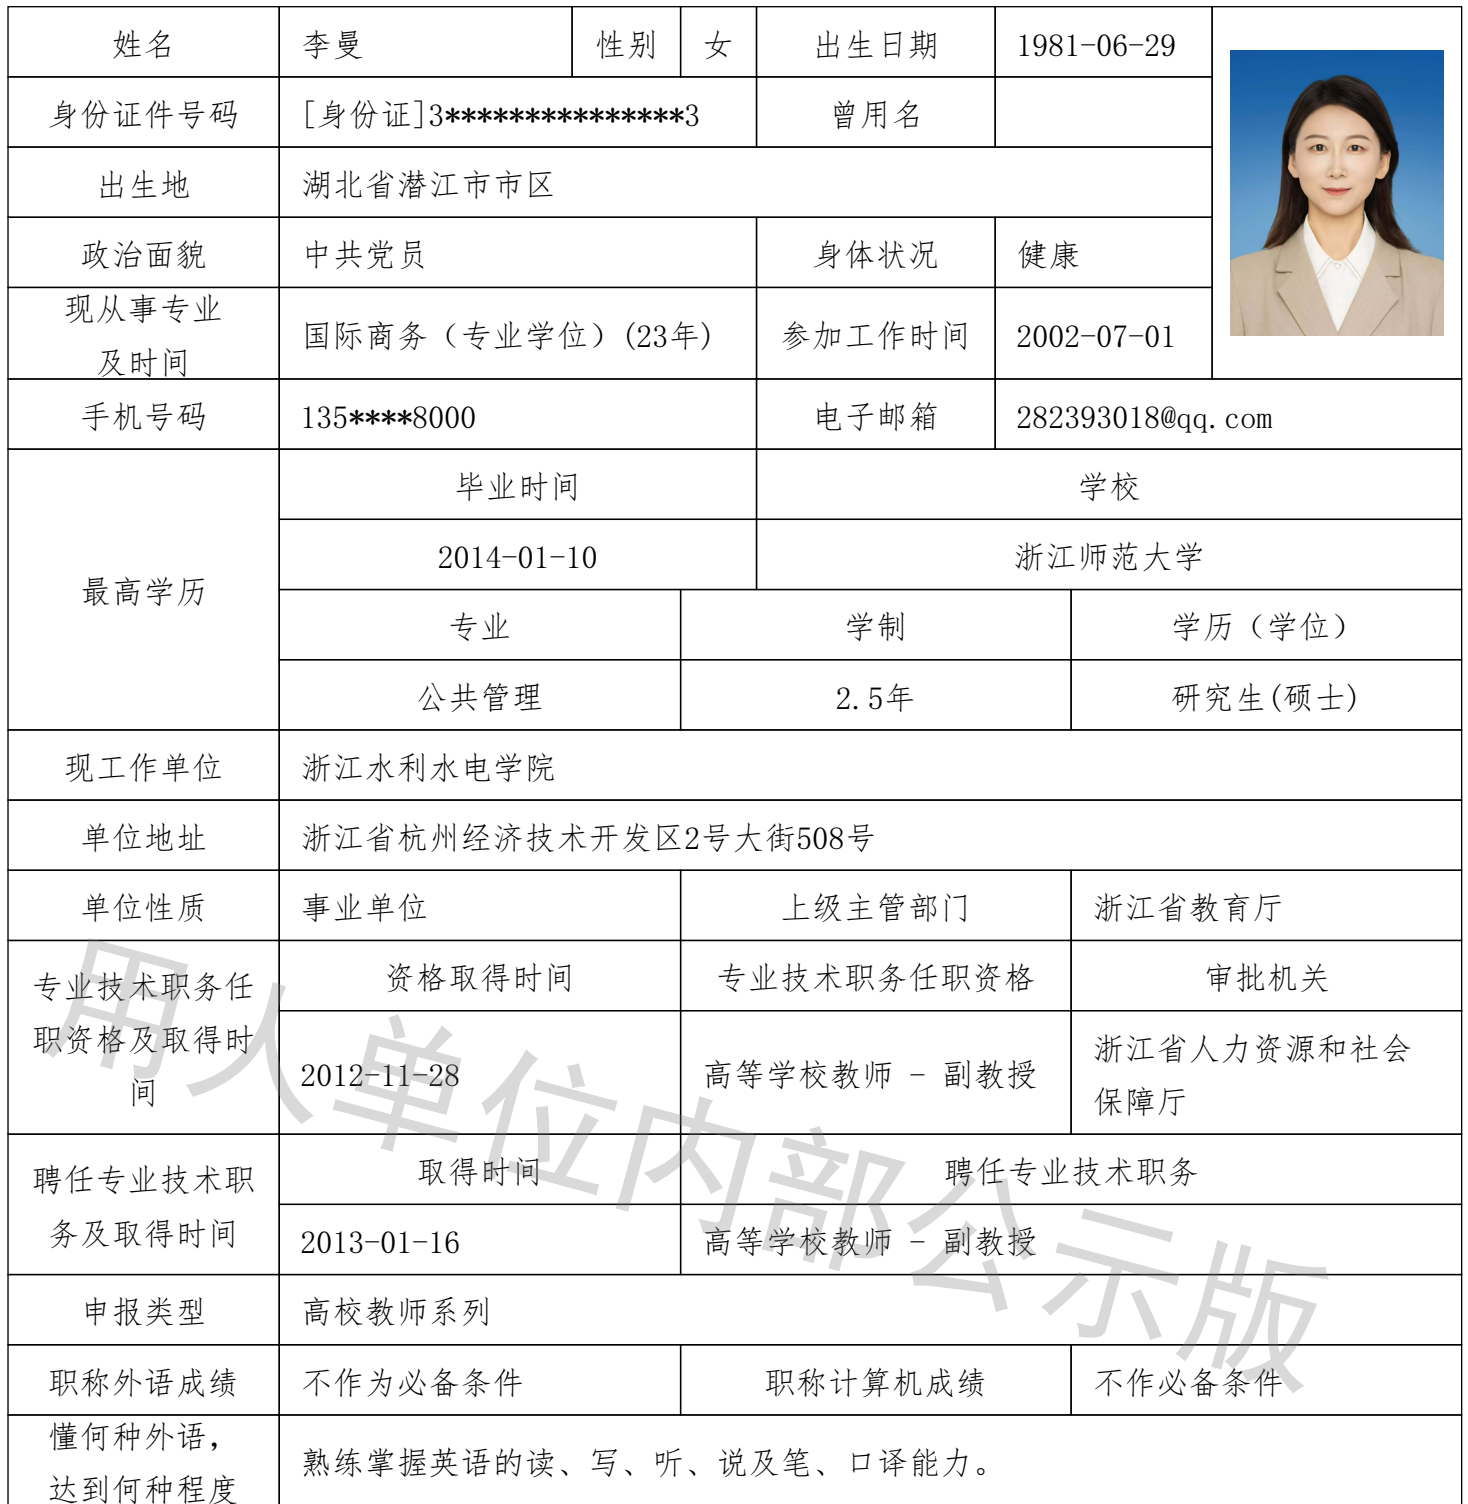 姓名 李曼 性别 女 出生日期 1981-06-29
身份证件号码 [身份证]3***************3 曾用名
出生地 湖北省潜江市市区
政治面貌 中共党员 身体状况 健康
现从事专业
及时间 国际商务（专业学位）(23年) 参加工作时间 2002-07-01
手机号码 135****8000 电子邮箱 282393018@qq.com
最高学历
毕业时间 学校
2014-01-10 浙江师范大学
专业 学制 学历（学位）
公共管理 2.5年 研究生(硕士)
现工作单位 浙江水利水电学院
单位地址 浙江省杭州经济技术开发区2号大街508号
单位性质 事业单位 上级主管部门 浙江省教育厅
专业技术职务任
职资格及取得时
间
资格取得时间 专业技术职务任职资格 审批机关
2012-11-28 高等学校教师 - 副教授 浙江省人力资源和社会
保障厅
聘任专业技术职
务及取得时间
取得时间 聘任专业技术职务
2013-01-16 高等学校教师 - 副教授
申报类型 高校教师系列
职称外语成绩 不作为必备条件 职称计算机成绩 不作必备条件
懂何种外语，
达到何种程度 熟练掌握英语的读、写、听、说及笔、口译能力。
用人单位内部公示版